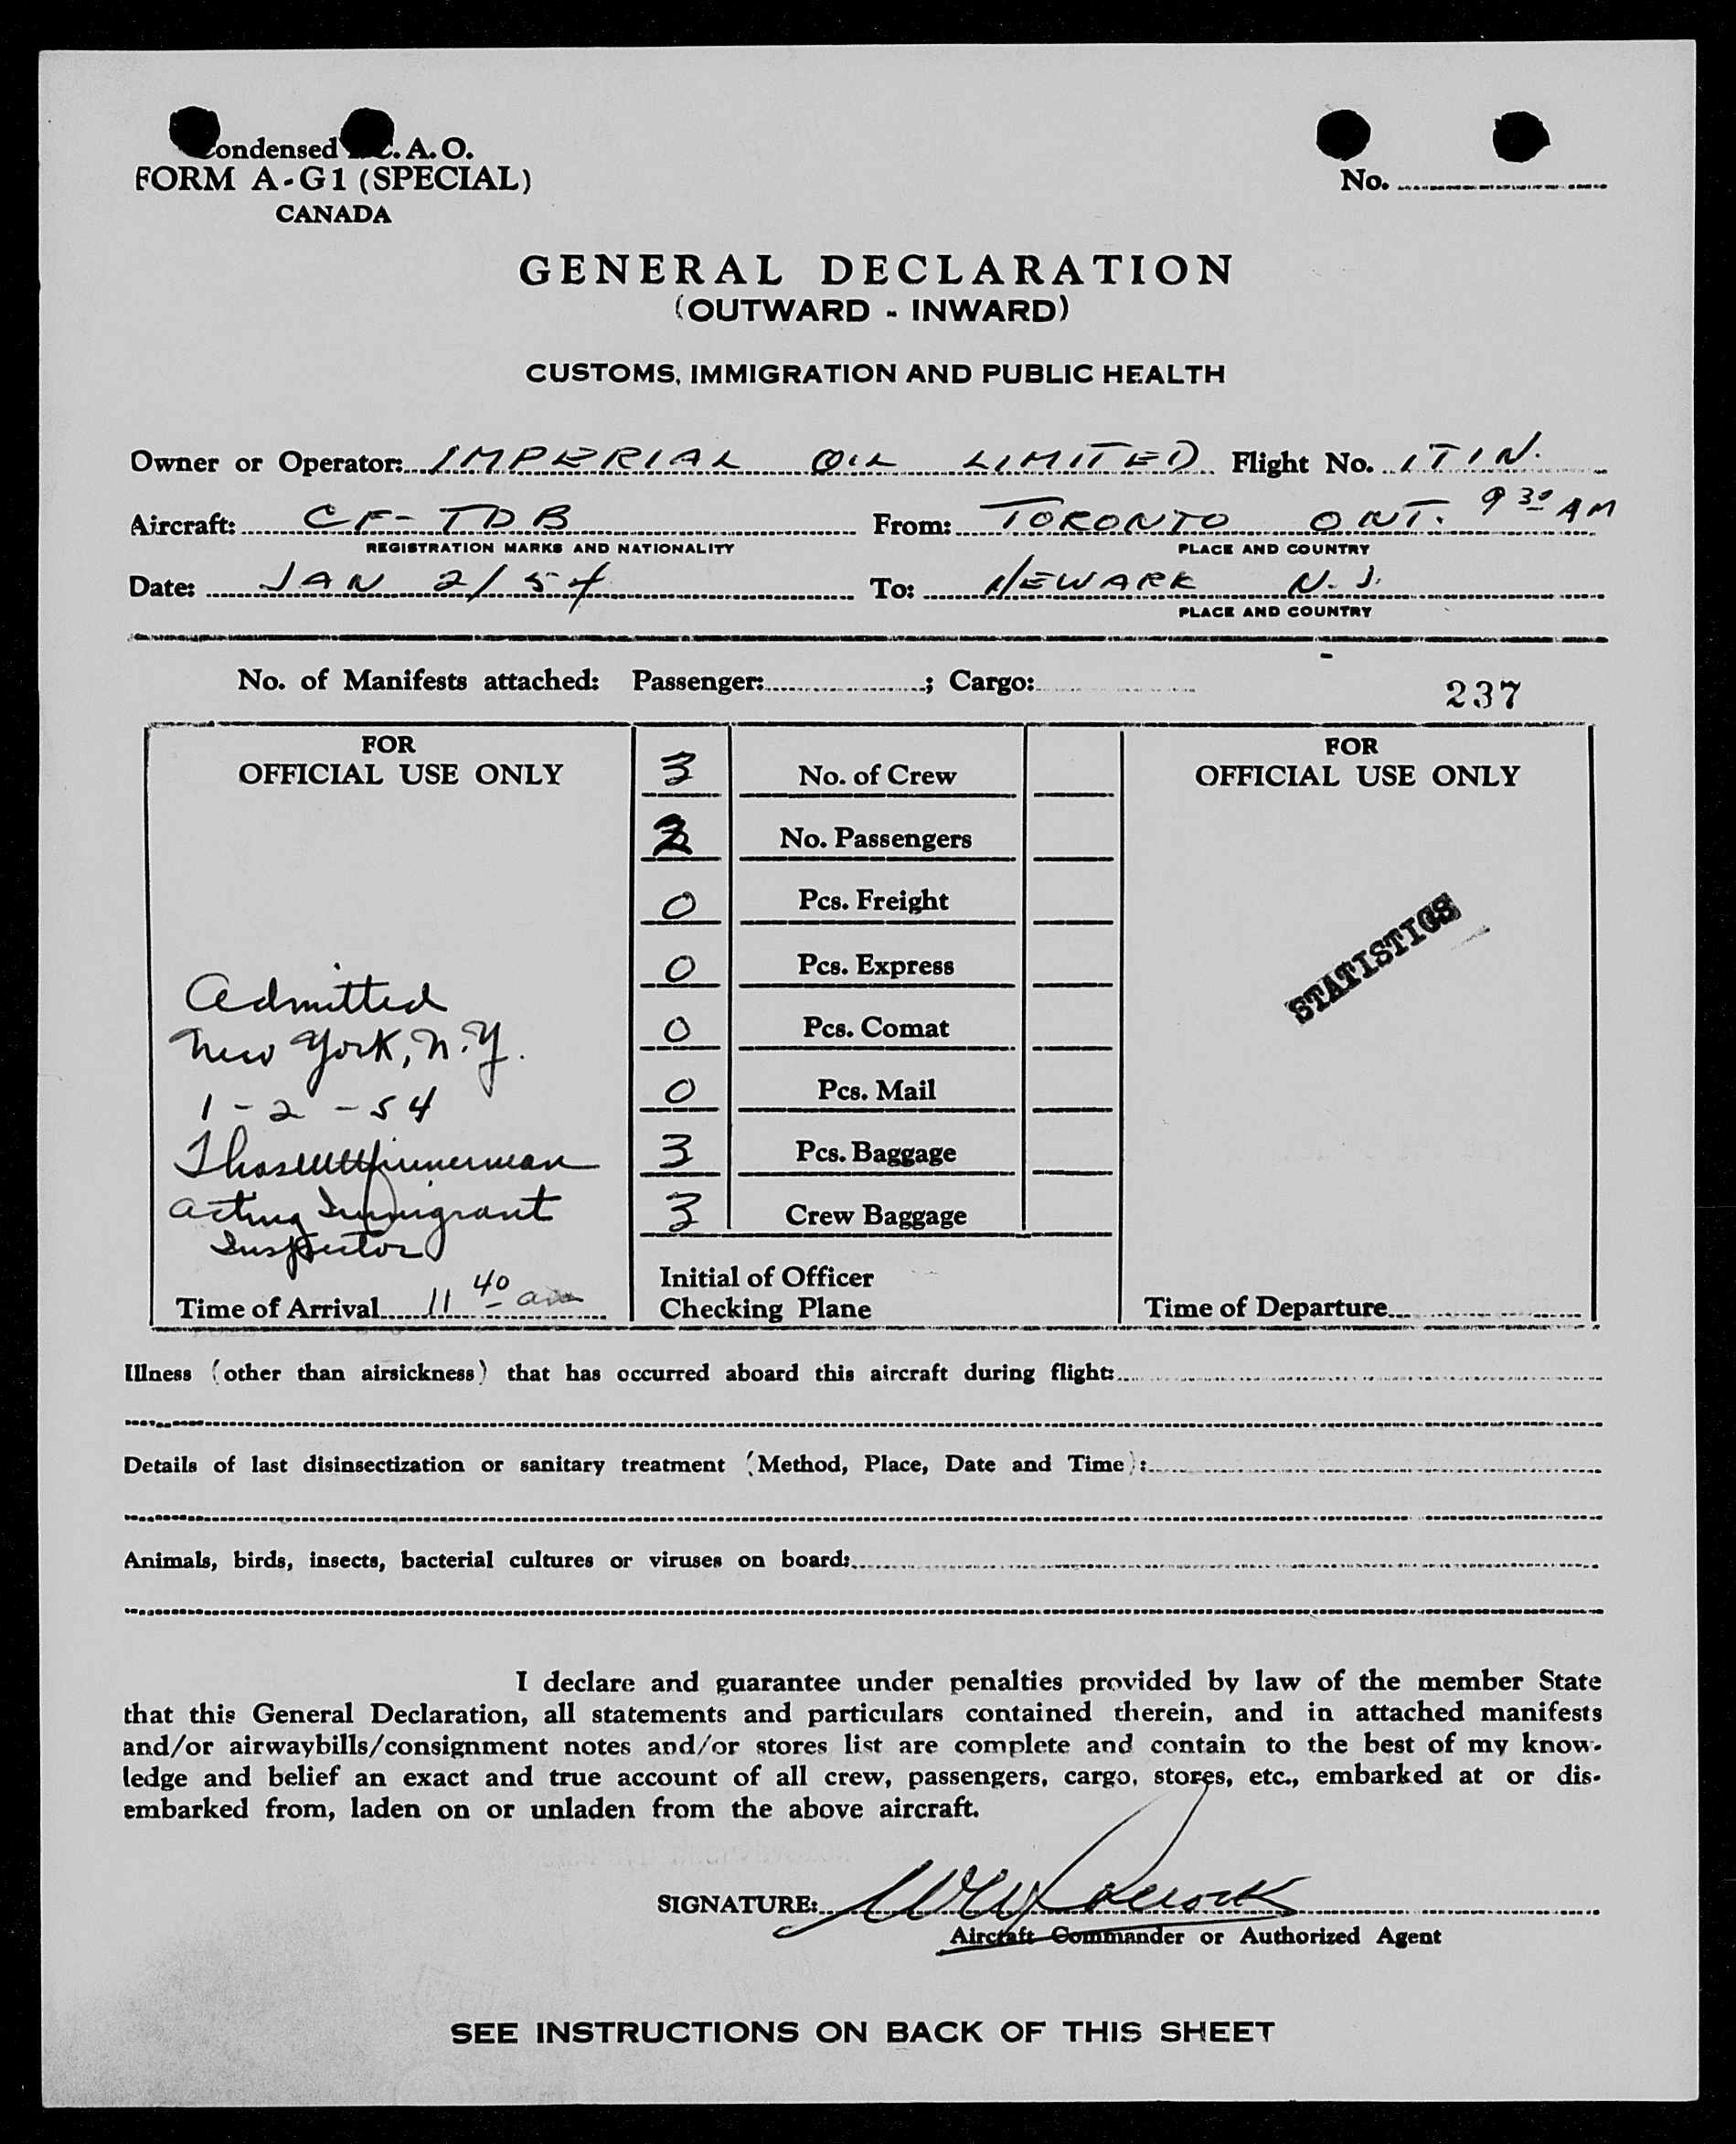 ondensed C.A.O.
FORM A-G1 (SPECIAL)
CANADA
No.
GENERAL DECLARATION
(OUTWARD - INWARD)
CUSTOMS, IMMIGRATION AND PUBLIC HEALTH
Owner or Operator: IMPERIAL OIL LIMITED Flight No. ITIN.
Aircraft: CF-TDB From: TORONTO ONT. 9 30 AM
REGISTRATION MARKS AND NATIONALITY PLACE AND COUNTRY
Date: JAN 2/54 To: NEWARK N.J.
PLACE AND COUNTRY
No. of Manifests attached: Passenger: ; Cargo:
237
FOR
OFFICIAL USE ONLY
Admitted
New York, N.Y.
1-2-54
Acting Immigrant
Inspector
Time of Arrival 11 40 am
3 No. of Crew
No. Passengers
0 Pcs. Freight
0 Pcs. Express
0 Pcs. Comat
0 Pcs. Mail
3 Pcs. Baggage
3 Crew Baggage
Initial of Officer
Checking Plane
FOR
OFFICIAL USE ONLY
STATISTICS
Time of Departure
Illness (other than airsickness) that has occurred aboard this aircraft during flight:
Details of last disinsectization or sanitary treatment (Method, Place, Date and Time):
Animals, birds, insects, bacterial cultures or viruses on board:
I declare and guarantee under penalties provided by law of the member State
that this General Declaration, all statements and particulars contained therein, and in attached manifests
and/or airwaybills/consignment notes and/or stores list are complete and contain to the best of my know-
ledge and belief an exact and true account of all crew, passengers, cargo, stores, etc., embarked at or dis-
embarked from, laden on or unladen from the above aircraft.
SIGNATURE:
Aircraft Commander or Authorized Agent
SEE INSTRUCTIONS ON BACK OF THIS SHEET